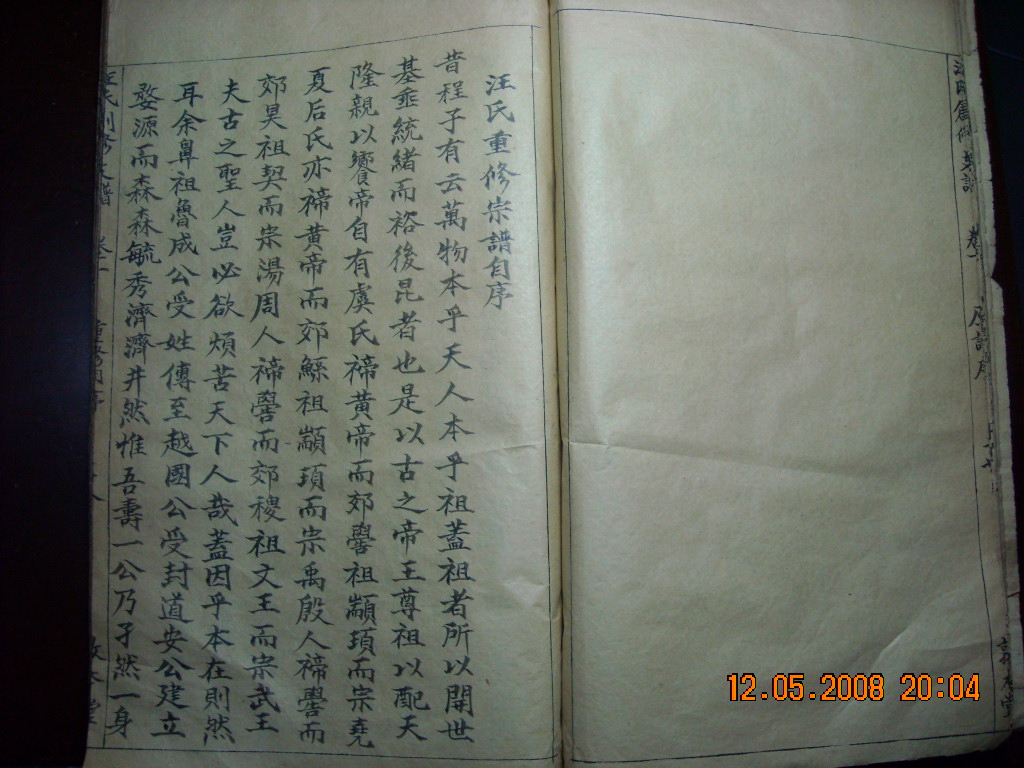 汪氏重修宗譜自序
昔程子有云萬物本乎天人本乎祖蓋祖者所以開世
基垂統緒而裕後昆者也是以古之帝王尊祖以配天
隆親以饗帝自有虞氏禘黃帝而郊嚳祖顓頊而宗堯
夏后氏亦禘黃帝而郊鯀祖顓頊而宗禹殷人禘嚳而
郊冥祖契而宗湯周人禘嚳而郊稷祖文王而宗武王
夫古之聖人豈必欲煩苦天下人哉蓋因乎本在則然
耳余鼻祖魯成公受姓傳至越國公受封道安公建立
婺源而森森毓秀濟濟井然惟吾壽一公乃孑然一身
12.05.2008 20:04